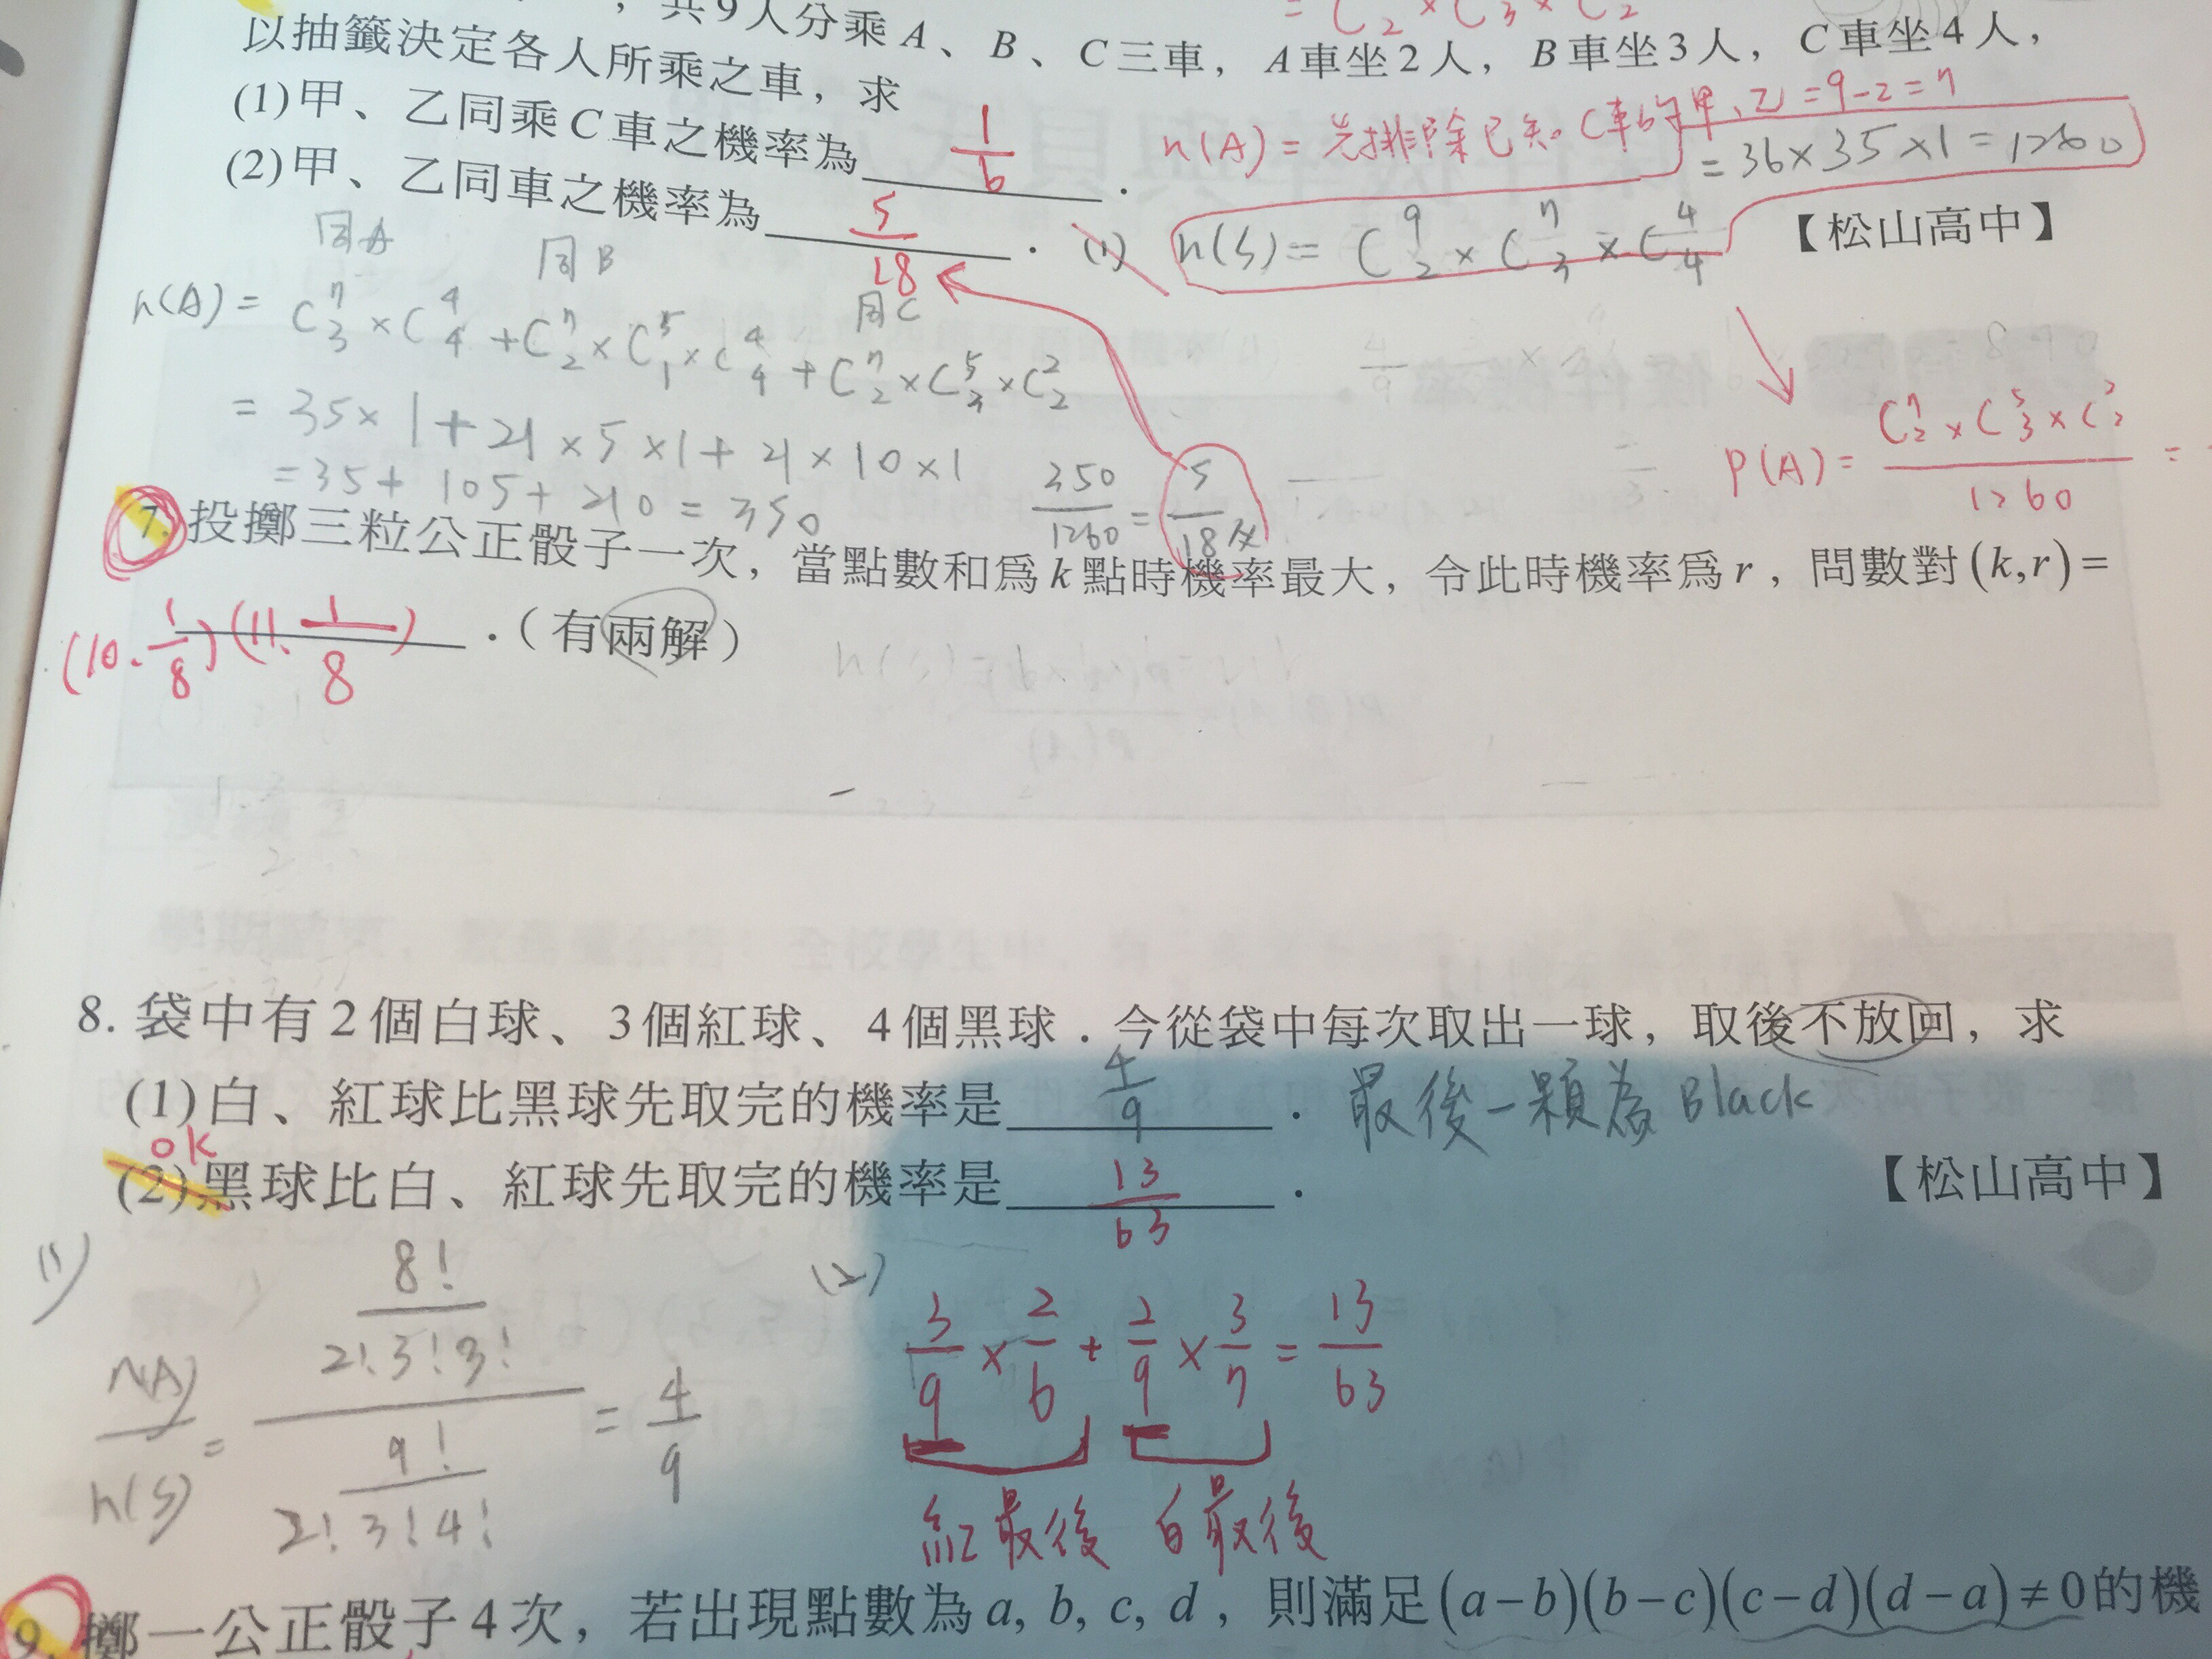 ，共9人分乘A、B、C三車，A車坐2人，B車坐3人，C車坐4人，
以抽籤決定各人所乘之車，求
(1)甲、乙同乘C車之機率為 1/6 .
n(A) = 先排除已知C車的甲、乙 = 9-2 = 7
= 36×35×1 = 1260
(2)甲、乙同車之機率為 5/18 .
(1) n(S) = C⁹₂ × C⁷₃ × C⁴₄
【松山高中】
同A 同B 同C
n(A) = C⁷₃ × C⁴₄ + C⁷₂ × C⁵₁ × C⁴₄ + C⁷₂ × C⁵₃ × C²₂
= 35×1 + 21×5×1 + 21×10×1
= 35 + 105 + 210 = 350
350/1260 = 5/18
P(A) = C⁷₂ × C⁵₃ × C²₂ / 1260 =
7. 投擲三粒公正骰子一次，當點數和爲k點時機率最大，令此時機率爲r，問數對(k,r)=
(10、1/8) (11、1/8) .（有兩解）
8. 袋中有2個白球、3個紅球、4個黑球．今從袋中每次取出一球，取後不放回，求
(1)白、紅球比黑球先取完的機率是 4/9 . 最後一顆為 Black
ok
(2)黑球比白、紅球先取完的機率是 13/63 .
【松山高中】
(1) n(A)/n(S) = (8!/2!3!3!)/(9!/2!3!4!) = 4/9
(2) 3/9 × 2/6 + 2/9 × 3/7 = 13/63
紅最後 白最後
9. 擲一公正骰子4次，若出現點數為a, b, c, d，則滿足(a−b)(b−c)(c−d)(d−a)≠0的機